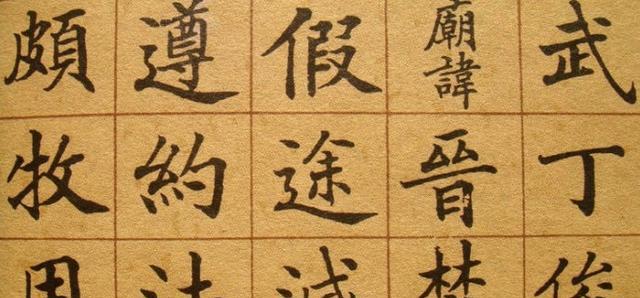 武丁俊
廟諱晉楚
假途滅
遵約法
頗牧用